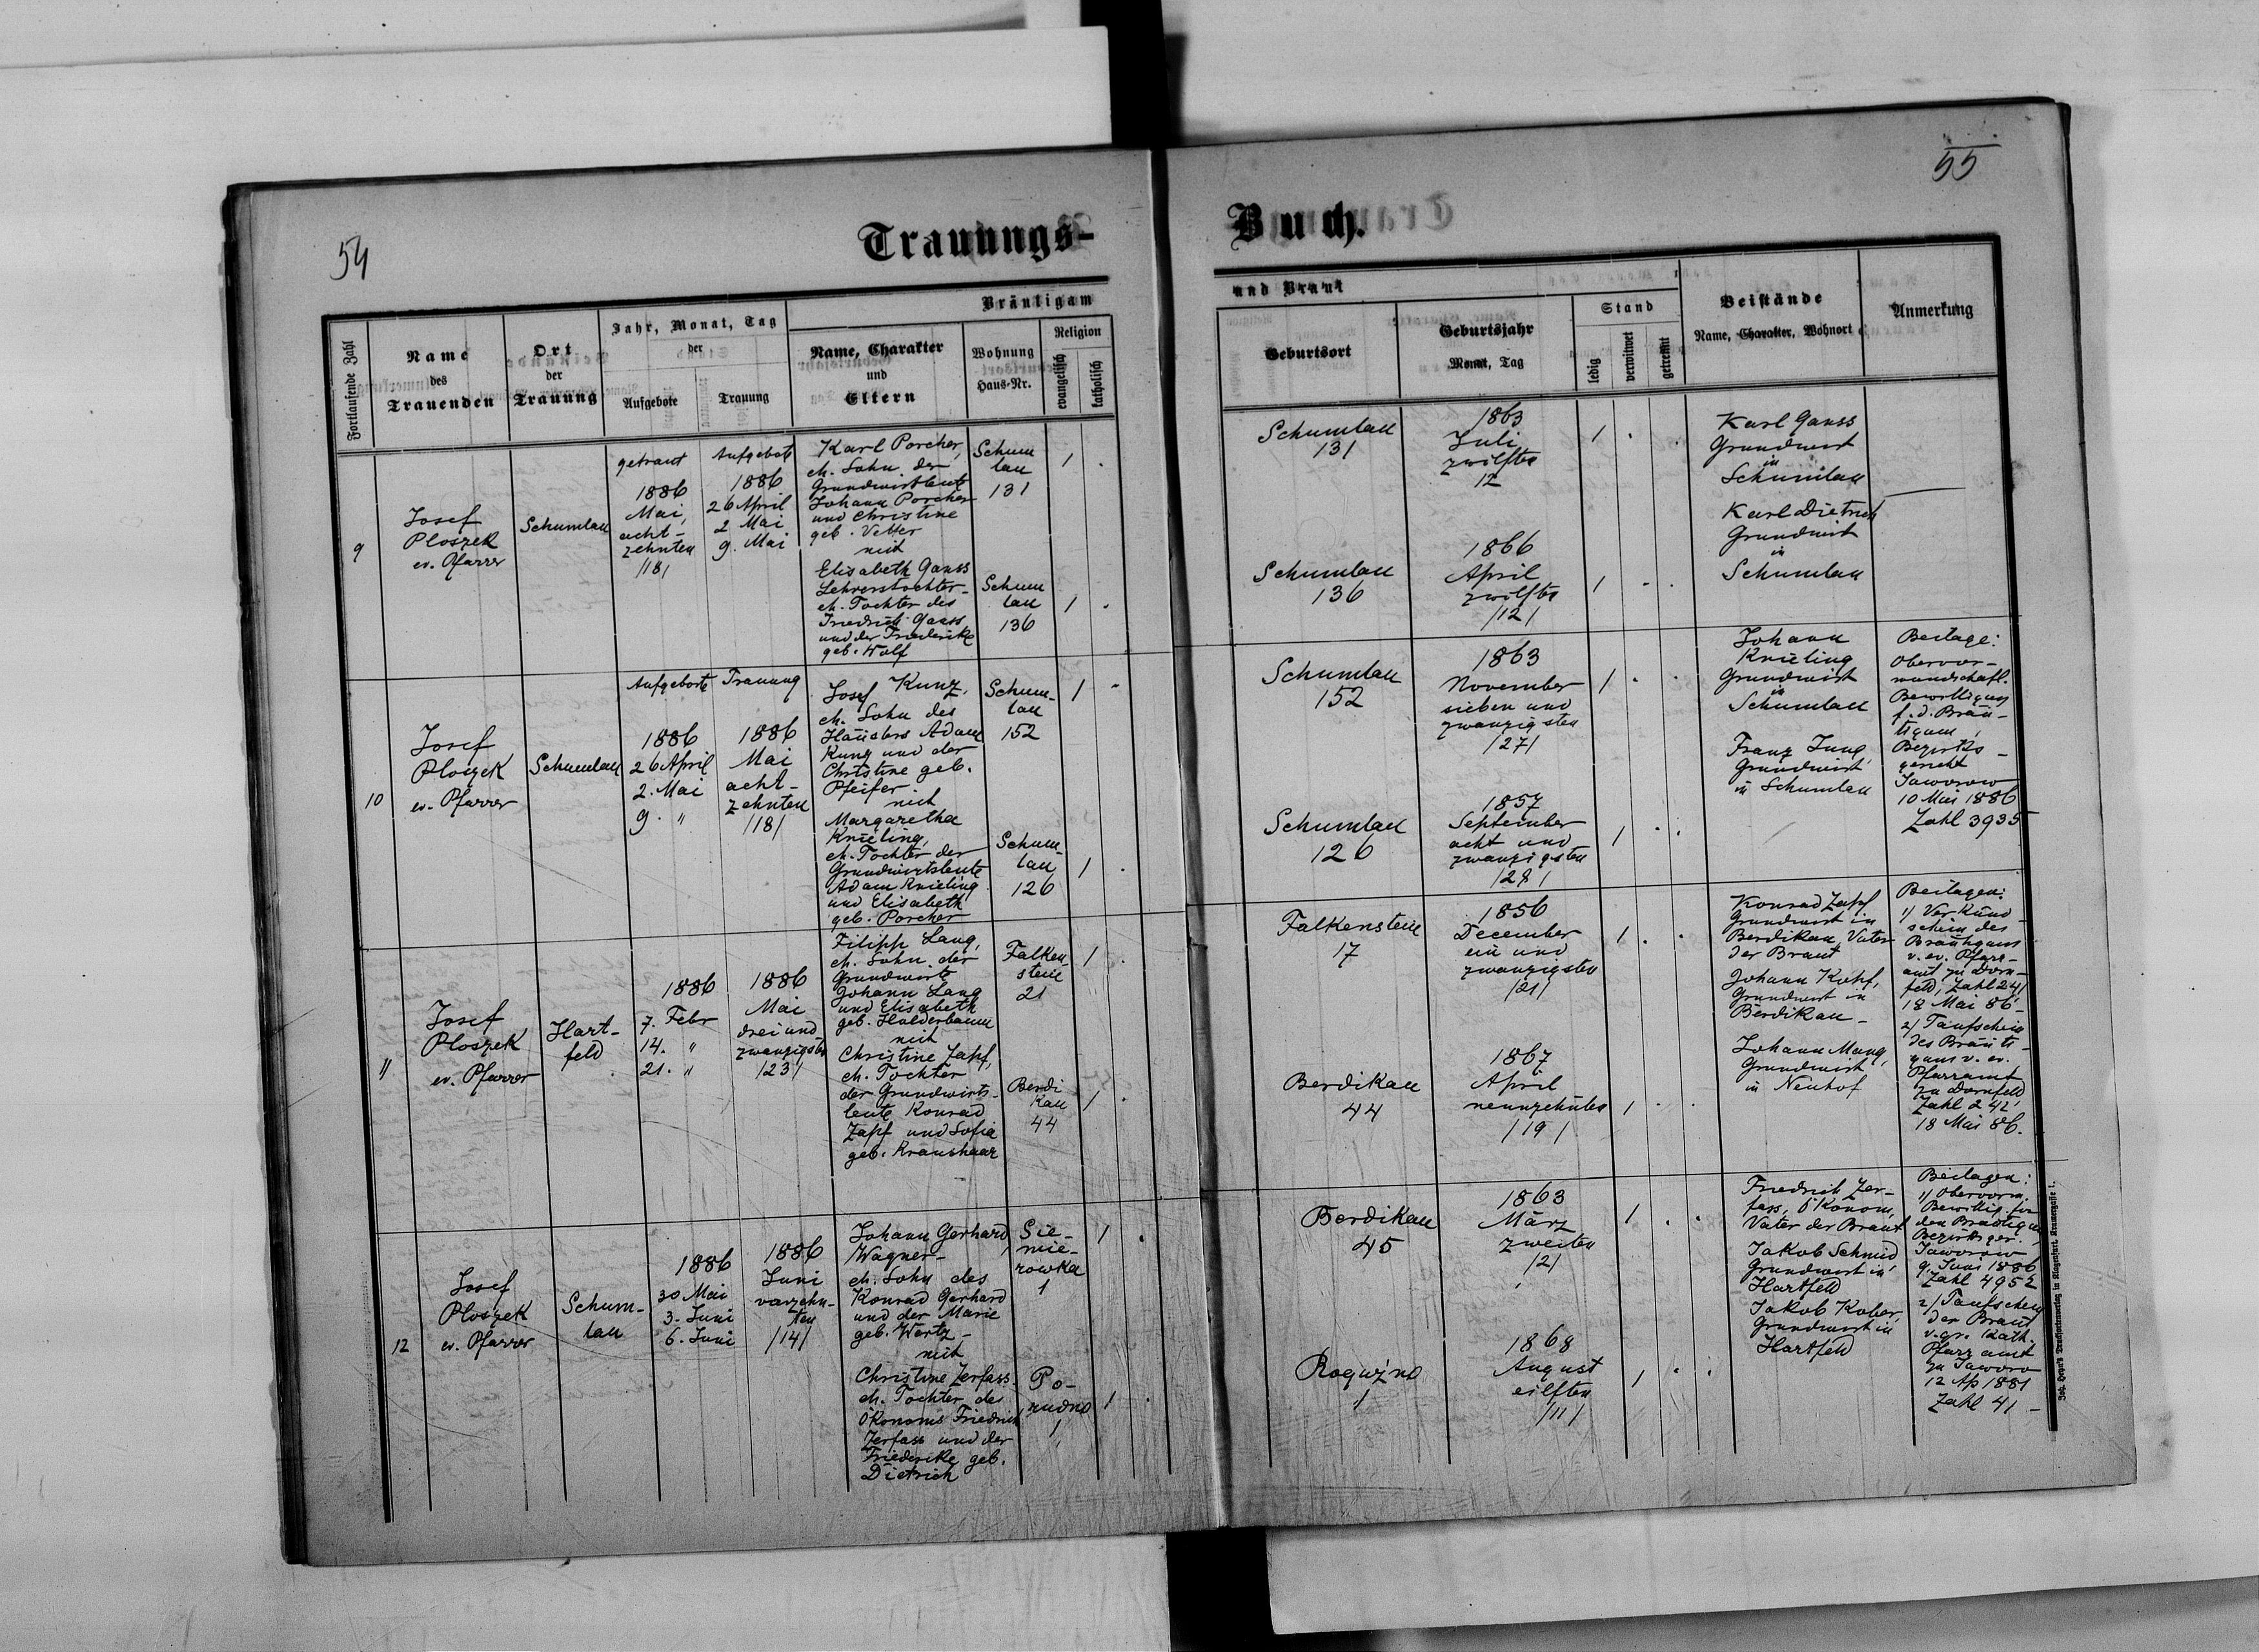 54
Trauungs-
Fortlaufende Zahl
Name
des
Trauenden
Ort
der
Trauung
Jahr, Monat, Tag
der
Aufgebote
Trauung
Bräutigam
Name, Charakter
und
Eltern
Wohnung
Haus-Nr.
Religion
evangelisch
katholisch
9
Josef
Ploszek
ev. Pfarrer
Schumlau
getraut
1886
Mai,
acht-
zehnten
/18/
Aufgebote
1886
26 April
2 Mai
9. Mai
Karl Porcher,
eh. Sohn der
Grundwirtsleute
Johann Porcher
und Christine
geb. Vetter
mit
Elisabeth Gauss
Lehrerstochter-
eh. Tochter des
Friedrich Gauss
und der Friederike
geb. Wolf
Schum
lau
131
1 .
Schum
lau
136
1 .
10
Josef
Ploszek
ev. Pfarrer
Schumlau
Aufgebote
1886
26 April
2. Mai
9. "
Trauung
1886
Mai
acht-
zehnten
/18/
Josef Kunz,
eh. Sohn des
Häuslers Adam
Kunz und der
Christine geb.
Pfeifer
mit
Margaretha
Knieling,
eh. Tochter der
Grundwirtsleute
Adam Knieling
und Elisabeth
geb. Porcher
Schum-
lau
152
1 -
Schum-
lau
126
1 .
11
Josef
Ploszek
ev. Pfarrer
Hart-
feld
1886
7. Febr
14. "
21. "
1886
Mai
drei und
zwanzigsten
/23/
Filipp Lang,
eh. Sohn der
Grundwirte
Johann Lang
und Elisabeth
geb. Halderbaum
mit
Christine Zapf,
eh. Tochter
der Grundwirts-
leute Konrad
Zapf und Sofia
geb. Kraushaar
Falken
stein
21
1 .
Berdi
kau
44
1 .
12
Josef
Ploszek
ev. Pfarrer
Schum-
lau
1886
30 Mai
3. Juni
6. Juni
1886
Juni
vierzehn-
ten
/14/
Johann Gerhard,
Wagner-
eh. Sohn des
Konrad Gerhard
und der Marie
geb. Wertz-
mit
Christine Zerfass
eh. Tochter des
Ökonoms Friedrich
Zerfass und der
Friederike geb.
Dietrich
Sie-
mie-
rowka
1
1 .
Po-
rudno
1
1 .
55
Buch.
und Braut
Geburtsort
Geburtsjahr
Monat, Tag
Stand
ledig
verwitwet
getrennt
Beistände
Name, Charakter, Wohnort
Anmerkung
Schumlau
131
1863
Juli
zwölften
12
1 . .
Schumlau
136
1866
April
zwölften
/12/
1 - .
Karl Gauss
Grundwirt
in
Schumlau
Karl Dietrich
Grundwirt
in
Schumlau
Schumlau
152
1863
November
sieben und
zwanzigsten
/27/
1 . .
Schumlau
126
1857
September
acht und
zwanzigsten
/28/
1 . .
Johann
Knieling
Grundwirt
in
Schumlau
Franz Jung
Grundwirt
in Schumlau
Beilage:
Obervor-
mundschaftl.
Bewilligung
f. d. Bräu-
tigam,
Bezirks-
gericht
Jaworow
10 Mai 1886
Zahl 3935
Falkenstein
17
1856
December
ein und
zwanzigsten
/21/
1 . .
Berdikau
44
1867
April
neunzehnten
/19/
1 . .
Konrad Zapf
Grundwirt in
Berdikau, Vater
der Braut
Johann Kopf,
Grundwirt in
Berdikau-
Johann Mang,
Grundwirt
in Neuhof
Beilagen:
1/ Verkünd-
schein des
Bräutigams
v. ev. Pfarr-
amt zu Dorn-
feld, Zahl 241
18 Mai 86-
2/ Taufschein
des Bräuti-
gams v. ev.
Pfarramt
zu Dornfeld
Zahl 242
18 Mai 86.
Berdikau
45
1863
März
zweiten
/2/
1 . .
Roguźno
1
1868
August
eilften
/11/
1 . .
Friedrich Zer-
fass, Ökonom,
Vater der Braut
Jakob Schmid
Grundwirt in
Hartfeld
Jakob Kober,
Grundwirt in
Hartfeld
Beilagen:
1/ Obervorm.
Bewillig. für
den Bräutigam
Bezirksger.
Jaworow
9. Juni 1886
Zahl 4952
2/ Taufschein
der Braut
v. gr. kath.
Pfarramt
zu Jaworo
12 Ap 1881
Zahl 41 -